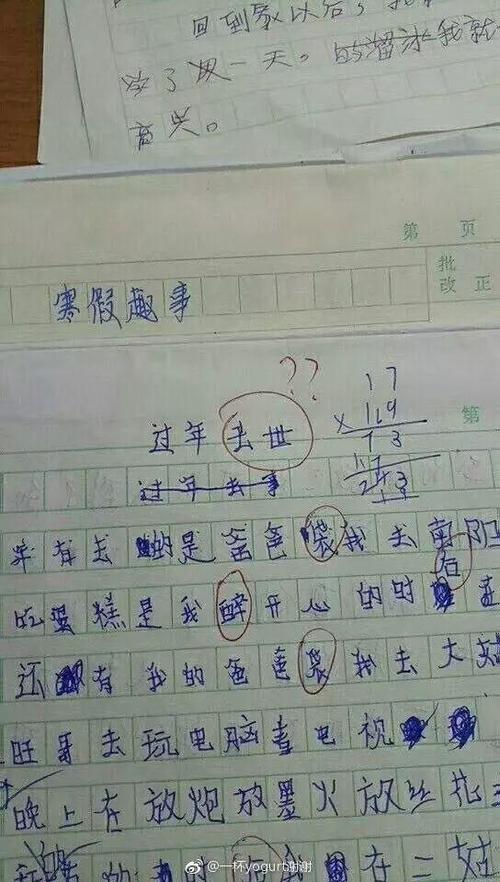 回到家以后，我
了一天。的溜冰我就
高兴。
第 页
批改 正
寒假趣事
??
17
过年去世
× 119
第
73
过年去事
17
年有去的是爸爸袋我去南阳
吃蛋糕是我醉开心的时
还有我的爸爸袋我去大
旺哥去玩电脑看电视
晚上在放炮放墨火放丝
的 在一
@一杯yogurt谢谢